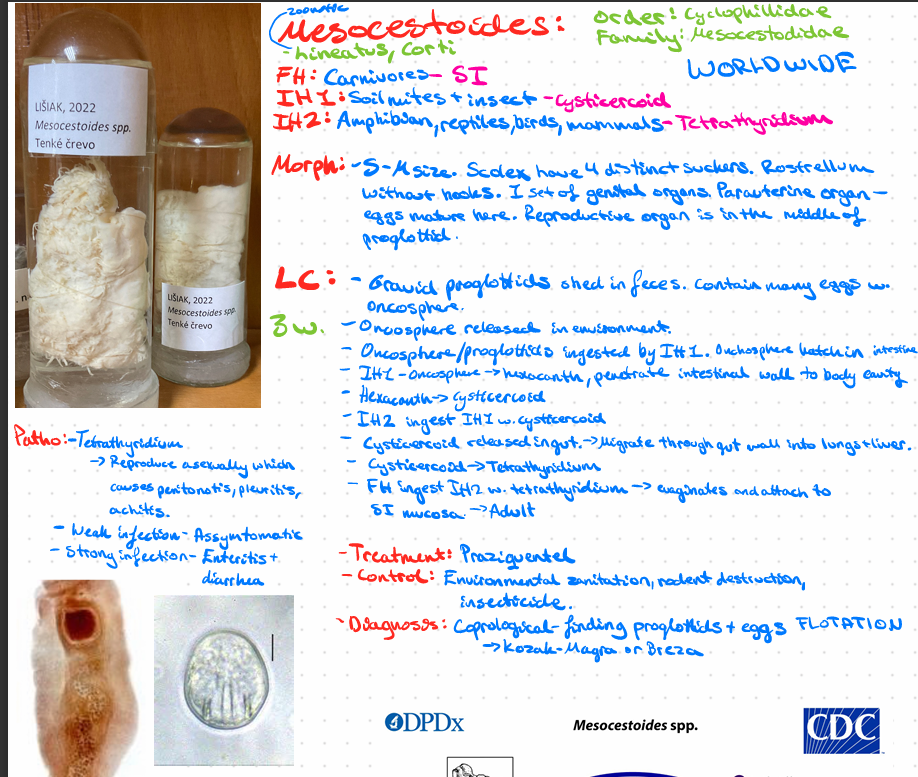 zoonotic
Mesocestoides:
-Lineatus, Corti
Order: Cyclophillidae
Family: Mesocestodidae
WORLDWIDE
FH: Carnivores- SI
IH1: Soil mites + insect -Cysticercoid
IH2: Amphibian, reptiles, birds, mammals- Tetrathyridium
LIŠIAK, 2022
Mesocestoides spp.
Tenké črevo
LIŠIAK, 2022
Mesocestoides spp.
Tenké črevo
Morph: -S-M size. Scolex have 4 distinct suckers. Rostrellum
without hooks. 1 set of genital organs. Parauterine organ-
eggs mature here. Reproductive organ is in the middle of
proglottid.
LC: - Gravid proglottids shed in feces. Contain many eggs w.
oncosphere.
3 w. - Oncosphere released in environment.
- Oncosphere/proglottids ingested by IH1. Onchosphere hatch in intestine
- IH1-Oncosphere → hexacanth, penetrate intestinal wall to body cavity
- Hexacanth → Cysticercoid
- IH2 ingest IH1 w. cysticercoid
- Cysticercoid released in gut. → Migrate through gut wall into lungs+liver.
- Cysticercoid → Tetrathyridium
- FH ingest IH2 w. tetrathyridium → evaginates and attach to
SI mucosa → Adult
Patho: -Tetrathyridium
→ Reproduce asexually which
causes peritonotis, pleuritis,
achitis.
- Weak infection- Assymtomatic
- Strong infection- Enteritis +
diarrhea
- Treatment: Praziquentel
- Control: Environmental sanitation, rodent destruction,
insecticide.
- Diagnosis: Coprological-finding proglottids + eggs FLOTATION
→ Kozak-Magra or Breza
DPDx
Mesocestoides spp.
CDC